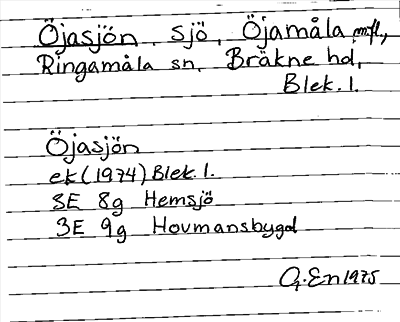 Öjasjön, sjö, Öjamåla mfl.,
Ringamåla sn, Bräkne hd,
Blek. l.
Öjasjön
ek (1974) Blek. l.
3E 8g Hemsjö
3E 9g Hovmansbygd
G. En 1975